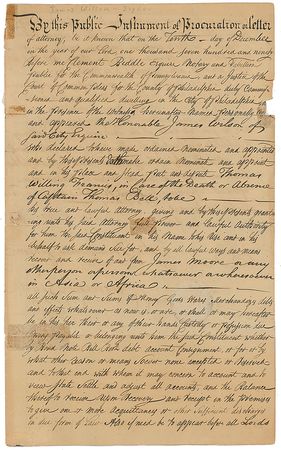 By this Public Instrument of Procuration or letter
of attorney, be it known that on the Tenth day of December
in the year of our Lord one thousand seven hundred and ninety
before me Clement Biddle Esquire Notary and Tabellion
Publick for the Commonwealth of Pennsylvania and a Justice of the
Court of Common Pleas for the County of Philadelphia duly Commis-
sioned and qualified dwelling in the City of Philadelphia and
in the presence of the Witnesses hereinafter named Personally came
and appeared the Honorable James Wilson of
said City Esquire
Who declared to have made ordained Nominated and appointed
and by these presents doth make ordain Nominate and appoint
and in his place and stead put and depute Thomas
Willing Francis, in Case of the Death or Absence
of Captain Thomas Bell to be
his true and lawful Attorney, giving and by these presents grant
ing unto his said Attorney full power and lawful Authority
for him the said Constituent in his Name to his Use and in his
behalf to ask demand Sue for, and by all lawful ways and means
recover and receive of and from James Moore or any
other person or persons whatsoever or wheresoever
in Asia or Africa
all such Sum and Sums of Money Goods Wares Merchandize debts
and effects whatsoever as now is or are, or shall or may hereafter
be in his her their or any of their hands Custody or possession due
owing payable or belonging unto him the said Constituent whether
by Bond Note Bill Book debt account Consignment or for or by
what other reason or means soever none excepted or reserved
and to that end with whom it may concern to account and to
view State Settle and adjust all accounts, and the Balance
thereof to receive Upon Recovery and receipt in the premises
to give one or more acquittances or other Sufficient discharges
in due form of Law Also if need be to appear before all Lords